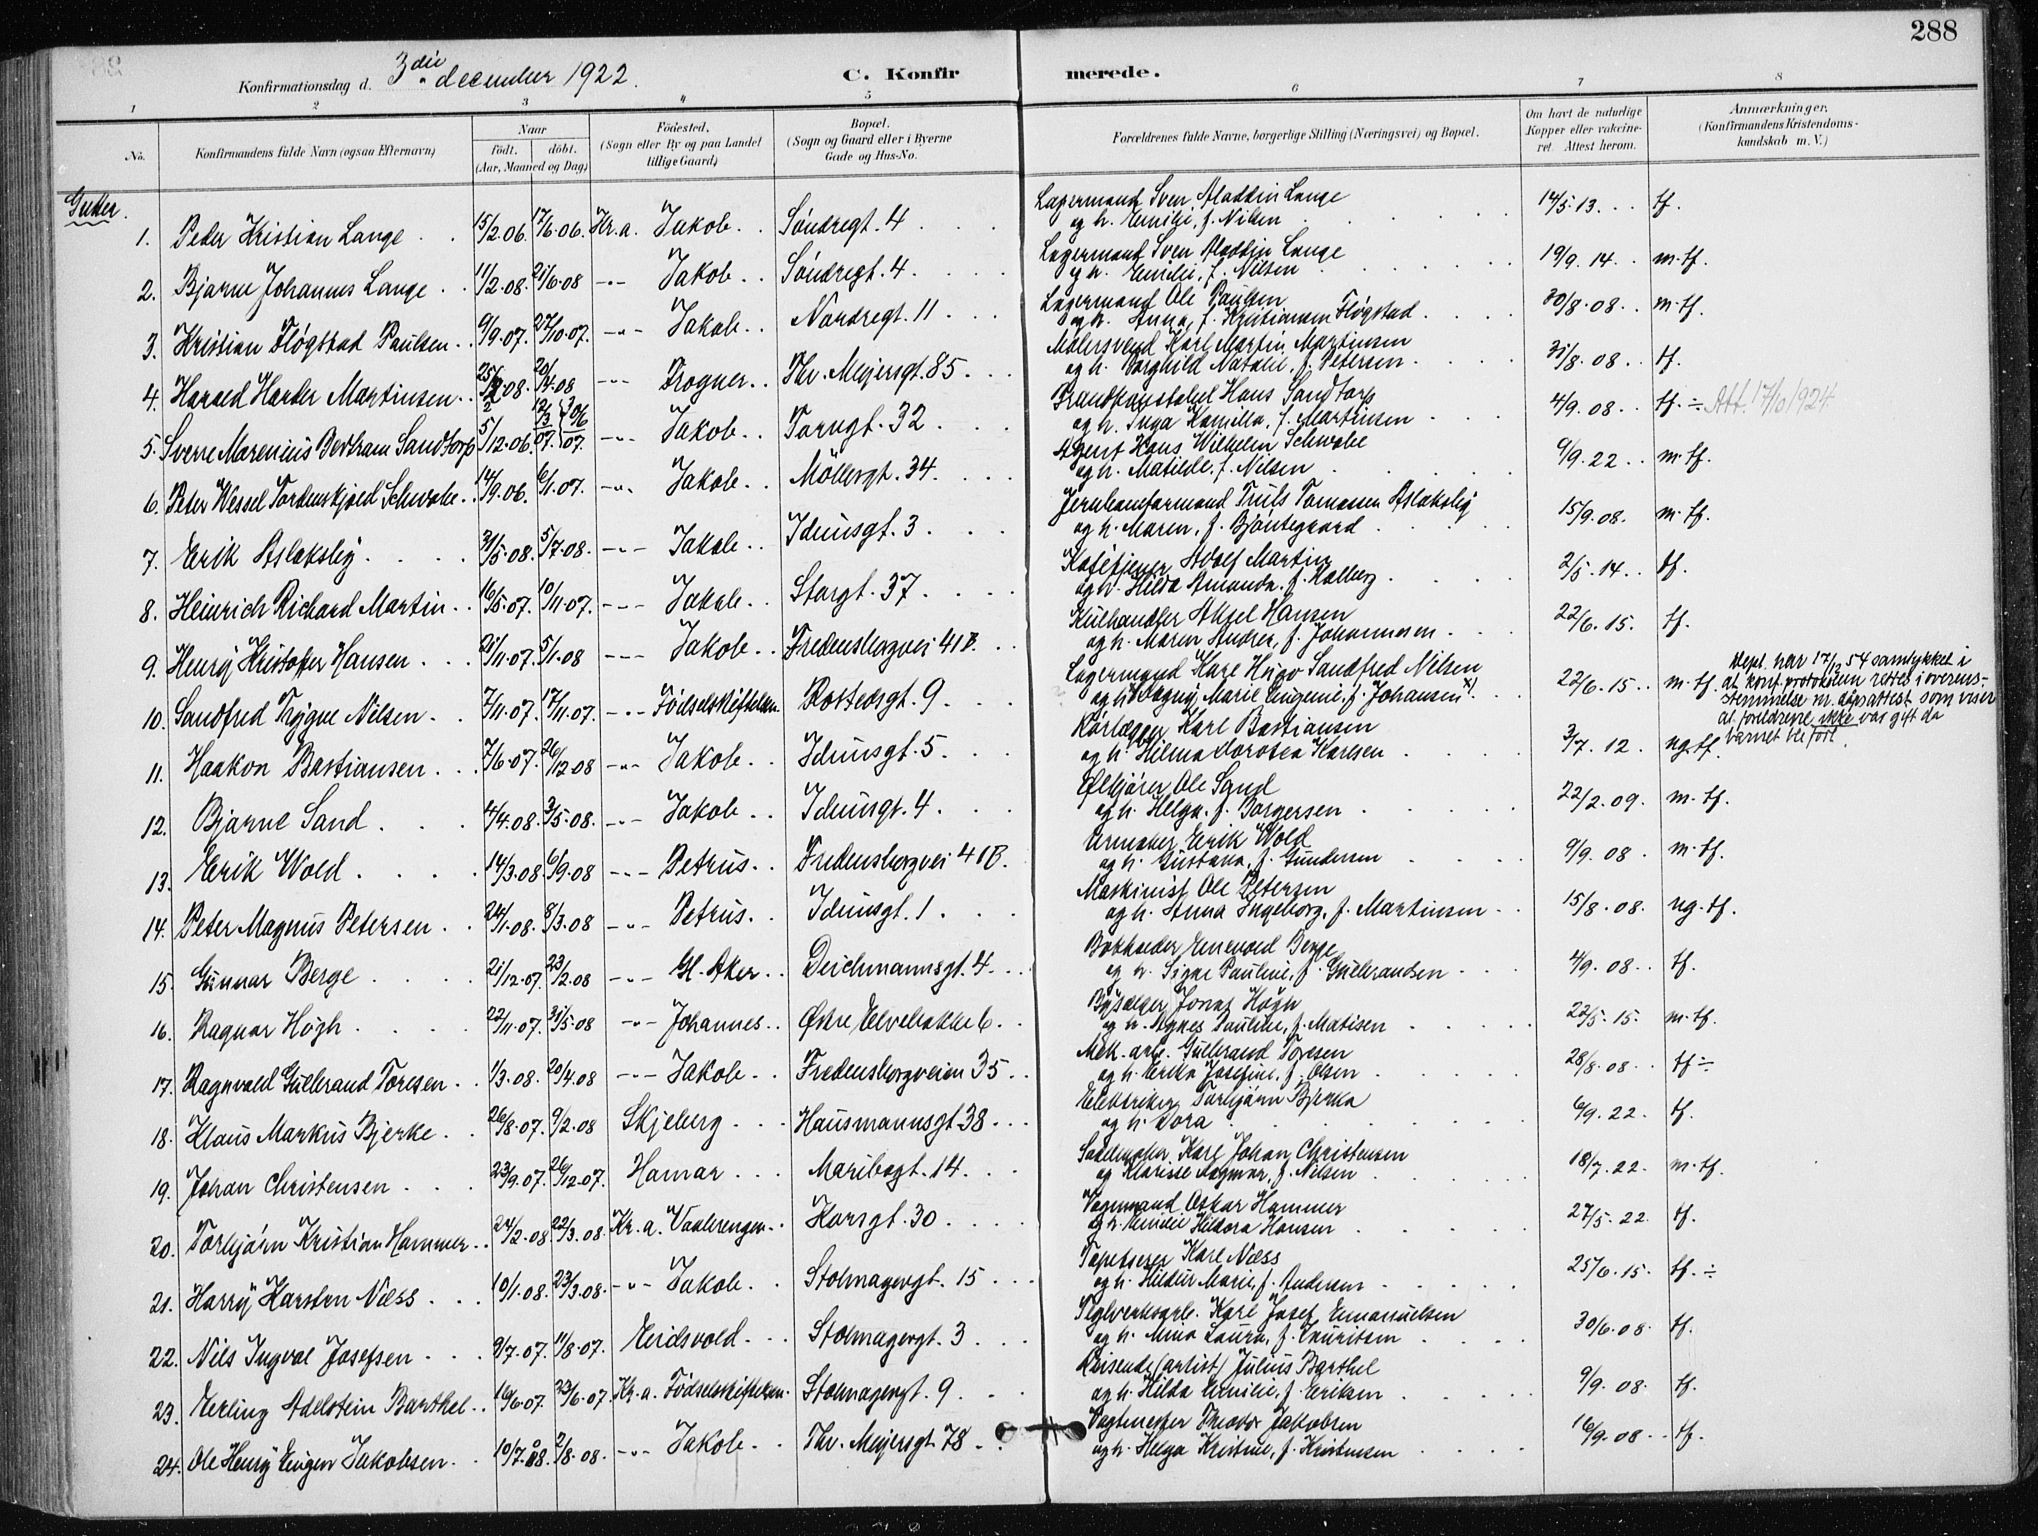 288
Konfirmationsdag d. 3die december 1922.
C. Konfirmerede.
1 2 3 4 5 6 7 8
No.
Konfirmandens fulde Navn (ogsaa Efternavn)
Naar
født. døbt.
(Aar, Maaned og Dag)
Fødested.
(Sogn eller By og paa Landet
tillige Gaard)
Bopæl.
(Sogn og Gaard eller i Byerne
Gade og Hus-No.
Forældrenes fulde Navne, borgerlige Stilling (Næringsvei) og Bopæl.
Om havt de naturlige
Kopper eller vakcine-
ret. Attest herom.
Anmærkninger.
(Konfirmandens Kristendoms-
kundskab m. V.)
Gutter.
1. Peder Kristian Lange 15/2.06. 17/6.06. Kr.a. Jakob Søndregt. 4 Lagermand Sven Aladdin Lange
og h. Emilie, f. Nilsen 14/5.13. tf.
2. Bjarne Johannes Lange 11/2.08. 21/6.08 -"- Jakob Søndregt. 4 Lagermand Sven Aladdin Lange
og h. Emilie, f. Nilsen 19/9.14. m.tf.
3. Kristian Fløgstad Paulsen 9/9.07. 27/10.07. -"- Jakob Nordregt. 11 Lagermand Ole Paulsen
og h. Anna, f. Kristiansen Fløgstad 30/8.08. m.tf.
4. Harald Harder Martinsen -"- Frogner Thv. Meyersgt. 85 Malersvend Karl Martin Martinsen
og h. Borghild Natalie, f. Petersen 31/8.08. tf.
5. Sverre Marenius Bertram Sandtorp 5/12.06. 12/3 07. 30/6 07. -"- Jakob Torvgt. 32 Brandkonstabel Hans Sandtorp
og h. Inga Kamilla, f. Martinsen 4/9.08. tf. ÷ Att. 17/10 1924.
6. Peter Wessel Tordenskjold Schwabe 14/9.06. 6/1.07. -"- Jakob Möllergt. 34 Agent Hans Wilhelm Schwabe
og h. Matilde, f. Nilsen 6/9.22. m.tf.
7. Erik Aslaksby 31/5.08. 5/7.08. -"- Jakob Idunsgt. 3 Jernbanformand Truls Tomassen Aslaksby
og h. Maren, f. Bjöntegaard 15/9.08. m.tf.
8. Heinrich Richard Martin 16/5.07. 10/11.07. -"- Jakob Storgt. 37 Kafétjener Adolf Martin
og h. Hilda Amanda, f. Kolberg 2/5.14. tf.
9. Henry Kristoffer Hansen 21/11.07. 5/1.08 -"- Jakob Fredensborgvei 41B. Kulhandler Aksel Hansen
og h. Maren Andrea, f. Johannesen 22/6.15. tf.
10. Sandfred Trygve Nilsen 7/11.07. 17/11.07. -"- Fødselsstiftelsen Rostedsgt. 9 Lagermand Karl Hugo Sandfred Nilsen
og h. Dagny Marie Eugenie, f. Johansen x) 22/6.15. m.tf.
Dept. har 17/12 54 samtykket i
at konf. protokollen rettes i overens-
stemmelse m. dåpsattest som viser
at foreldrene ikke var gift da
barnet ble født.
11. Haakon Bastiansen 7/6.07. 26/12.08 -"- Jakob Idunsgt. 5 Rørlægger Karl Bastiansen
og h. Hilma Dorotea Karlsen 3/7.12. ng.tf.
12. Bjarne Sand 4/4.08. 3/5.08. -"- Jakob Idunsgt. 4 Ølkjører Ole Sand
og h. Helga, f. Borgersen 22/2.09. m.tf.
13. Erik Wold 14/3.08 6/9.08 -"- Petrus Fredensborgvei 41B. Urmaker Erik Wold
og h. Gustava, f. Gundersen 9/9.08. m.tf.
14. Peter Magnus Petersen 24/1.08. 8/3.08 -"- Petrus Idunsgt. 1 Maskinist Ole Petersen
og h. Anna Ingeborg, f. Martinsen 15/8.08. ng.tf.
15. Gunnar Berge 21/12.07. 23/2.08 -"- Gl. Aker Deichmannsgt. 4 Bokholder Berge
og h. Signe Pauline, f. Gulbrandsen 4/9.08. tf.
16. Ragnar Högh 22/11.07. 31/5.08 -"- Johannes Østre Elvebakke 6 Jonas Högh
og h. Agnes Pauline, f. Matisen 22/5.15. m.tf.
17. Ragnvald Gulbrand Toresen 1/3.08. 20/4.08 -"- Jakob Fredensborgveien 35 Mek. arb. Gulbrand Toresen
og h. Erika Josefine, f. Olsen 28/8.08. tf ÷
18. Klaus Markus Bjerke 26/8.07. 9/2.08 Skjeberg Hausmannsgt 38 Elektriker Torbjørn Bjerke
og h. Dora 6/9.22. tf.
19. Johan Christensen 23/9.07. 26/12.07. Hamar Maribogt. 14 Sadelmaker Karl Johan Christensen
og Klarisse Dagmar, f. Nilsen 18/7.22. m.tf.
20. Torbjørn Kristian Hammer 24/2.08 22/3.08. Kr.a. Vaalerengen Korsgt. 30 Vognmand Oskar Hammer
og h. Emilie Hildora Hansen 27/5.22. tf.
21. Harry Karsten Næss 10/1.08. 23/3.08. -"- Jakob Stolmagergt. 15 Tapetserer Karl Næss
og h. Hildur Marie, f. Andersen 25/6.15. tf. ÷
22. Nils Ingval Josefsen 9/7.07. 11/8.07. Eidsvold Stolmagergt. 3 Teglverksarb. Karl Josef Emanuelsen
og h. Mina Laura, f. Lauritsen 30/6.08. tf.
23. Erling Adelstein Barthel 16/6.07. 23/6.07. Kr.a. Fødselsstiftelsen Stolmagergt. 9 Reisende (artist) Julius Barthel
og h. Hilda Emilie, f. Eriksen 9/9.08. tf.
24. Ole Henry Eugen Jakobsen 10/7.08. 2/8.08. -"- Jakob Thv. Meyersgt. 78 Vagtmester Theodor Jakobsen
og h. Helga Kristine, f. Kristensen 16/9.08 tf.